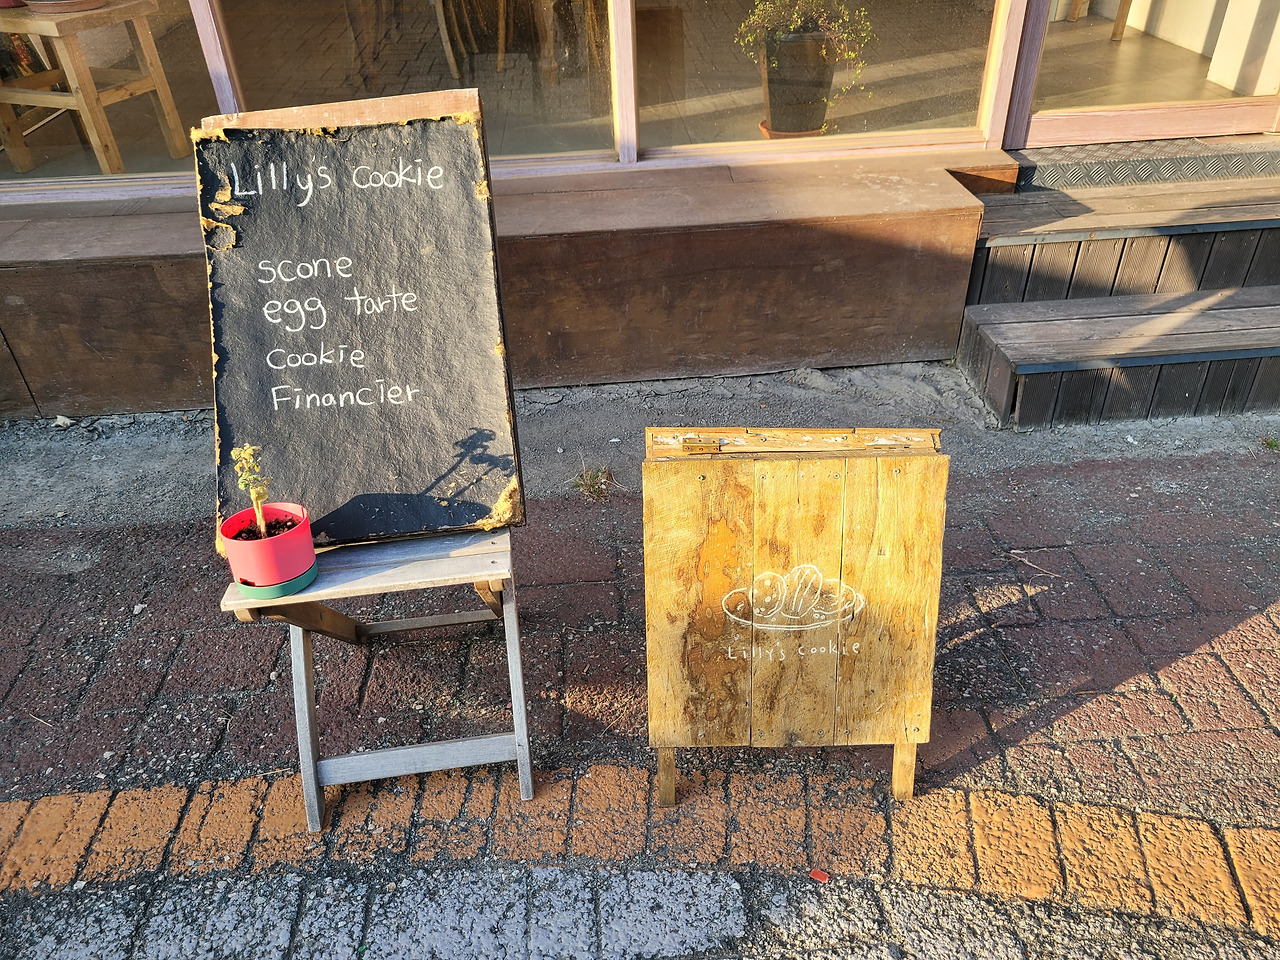 Lilly's Cookie
scone
egg tarte
Cookie
Financier
Lilly's cookie